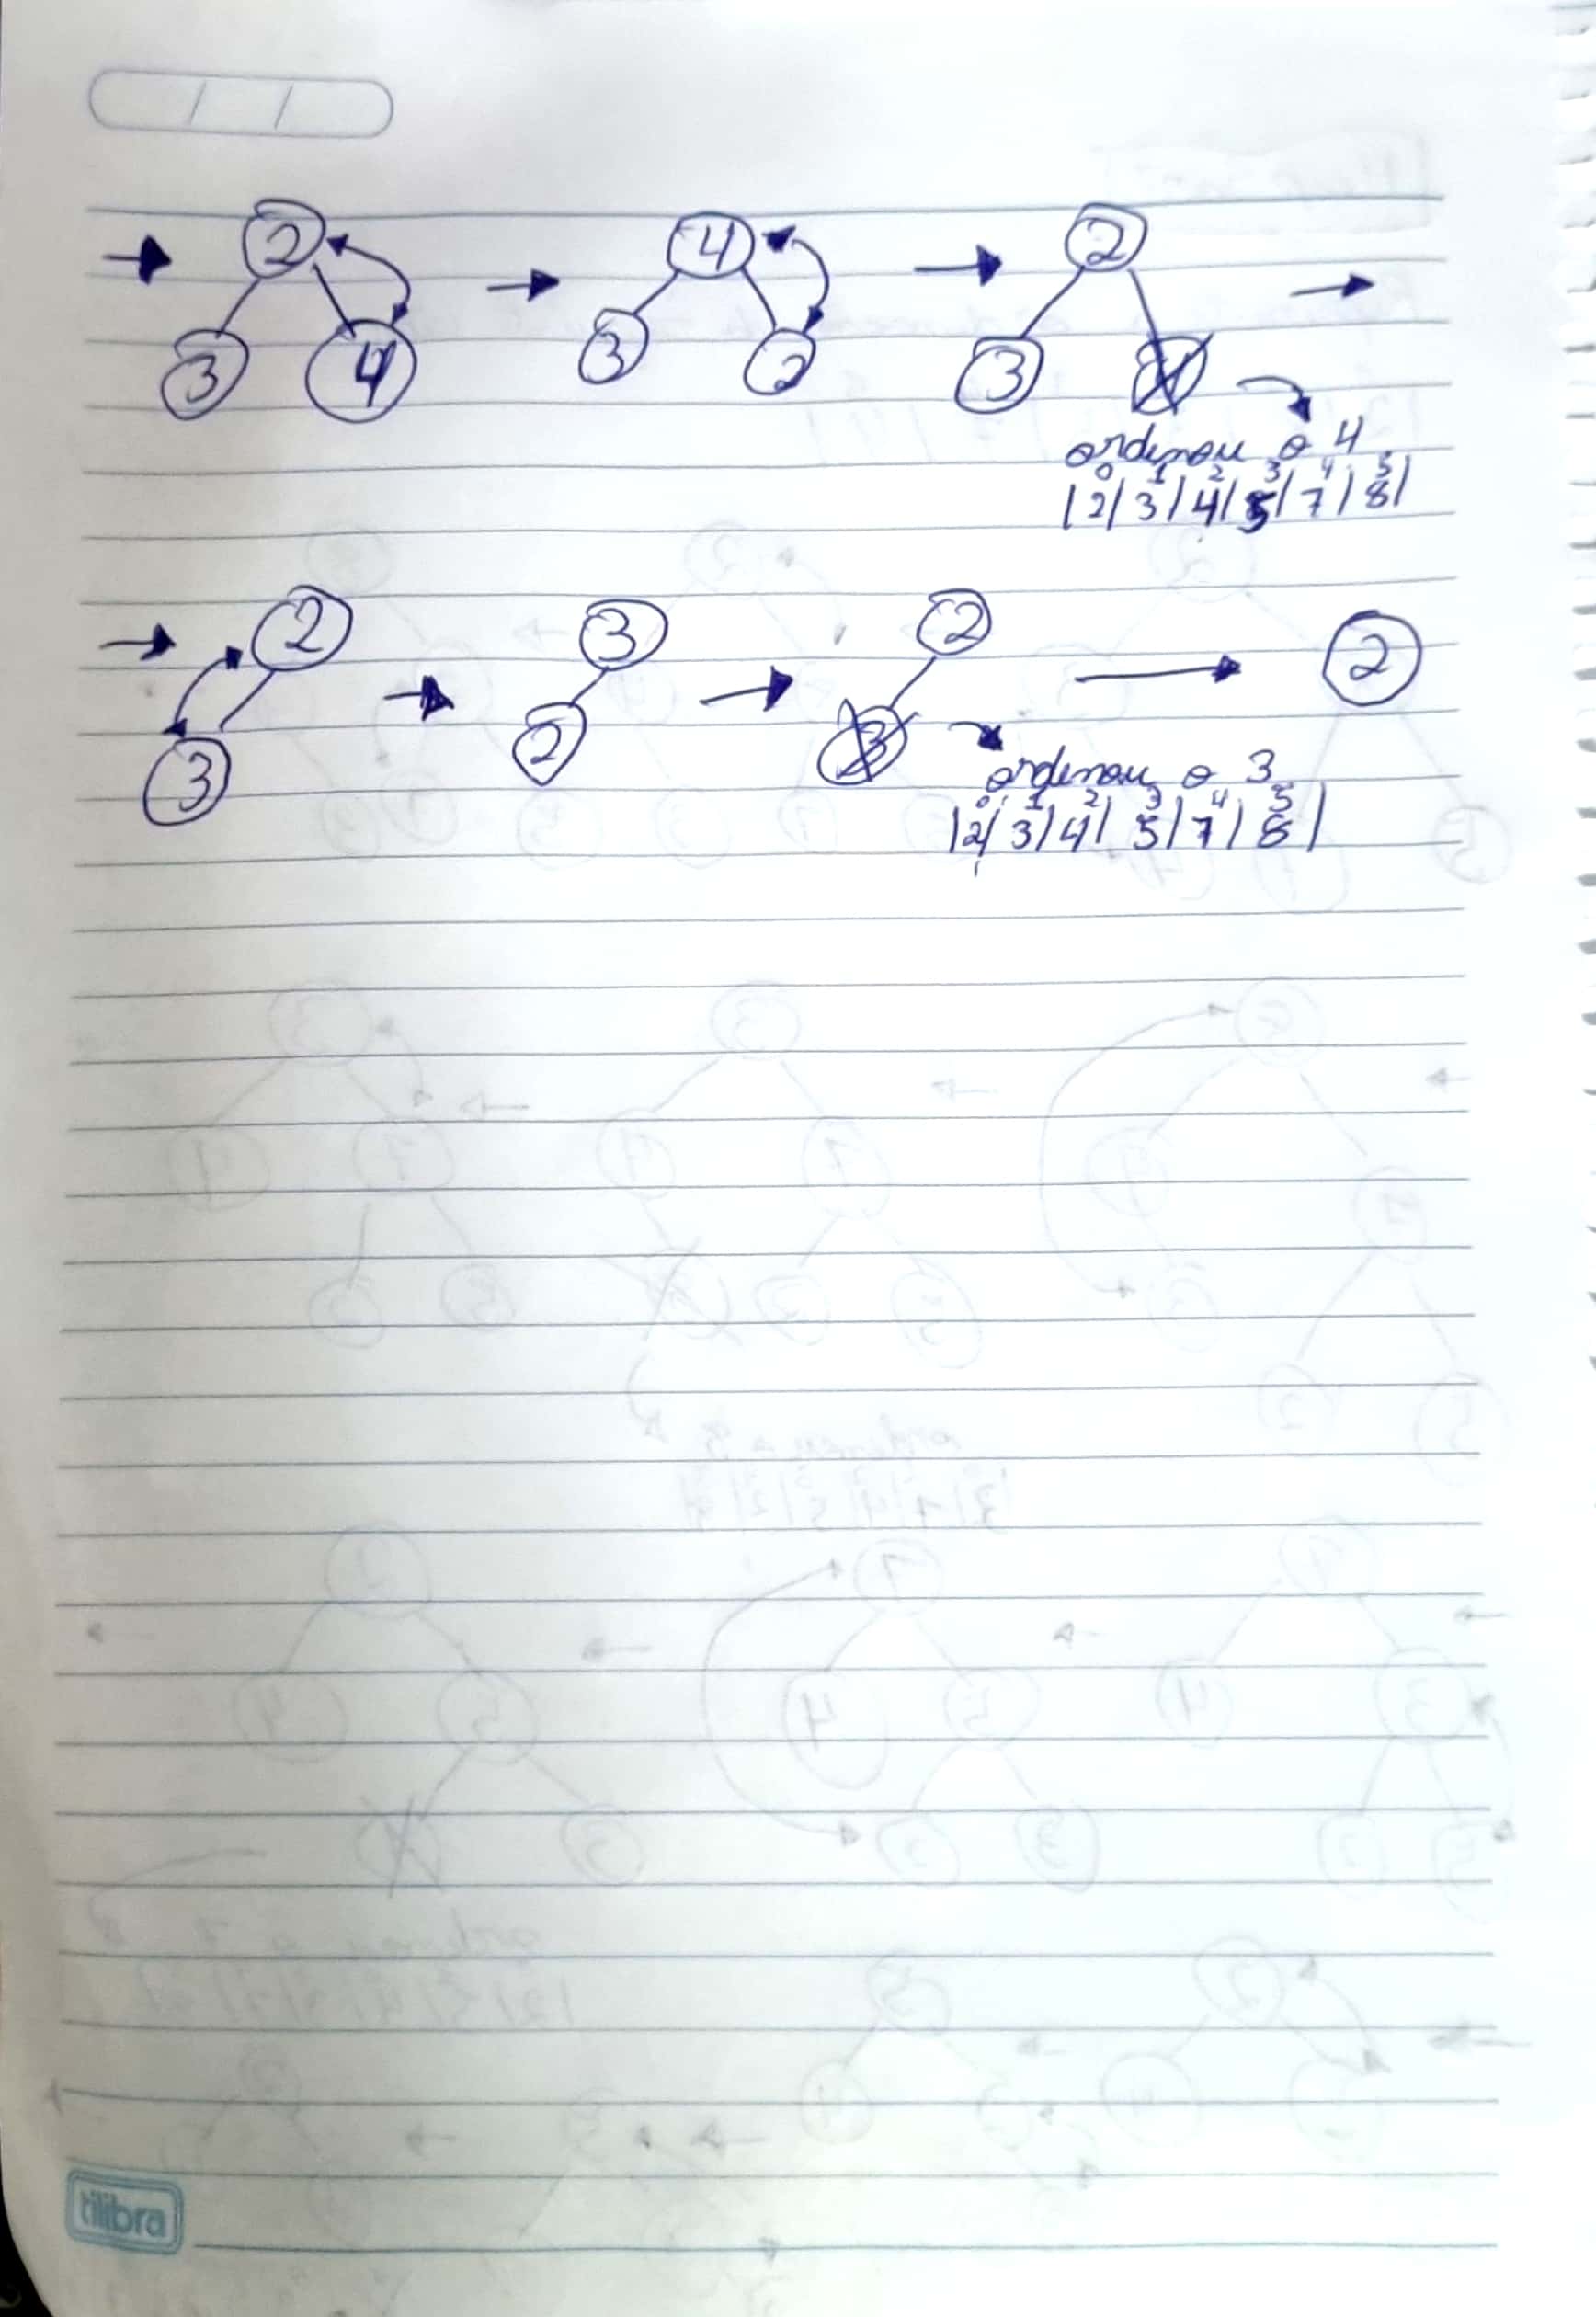 / /
→ 2 → 4 → 2 →
3 4 3 2 3 4
ordenou o 4
0 1 2 3 4 5
|2|3|4|5|7|8|
→ 2 → 3 → 2 → 2
3 2 3
ordenou o 3
0 1 2 3 4 5
|2|3|4|5|7|8|
tilibra